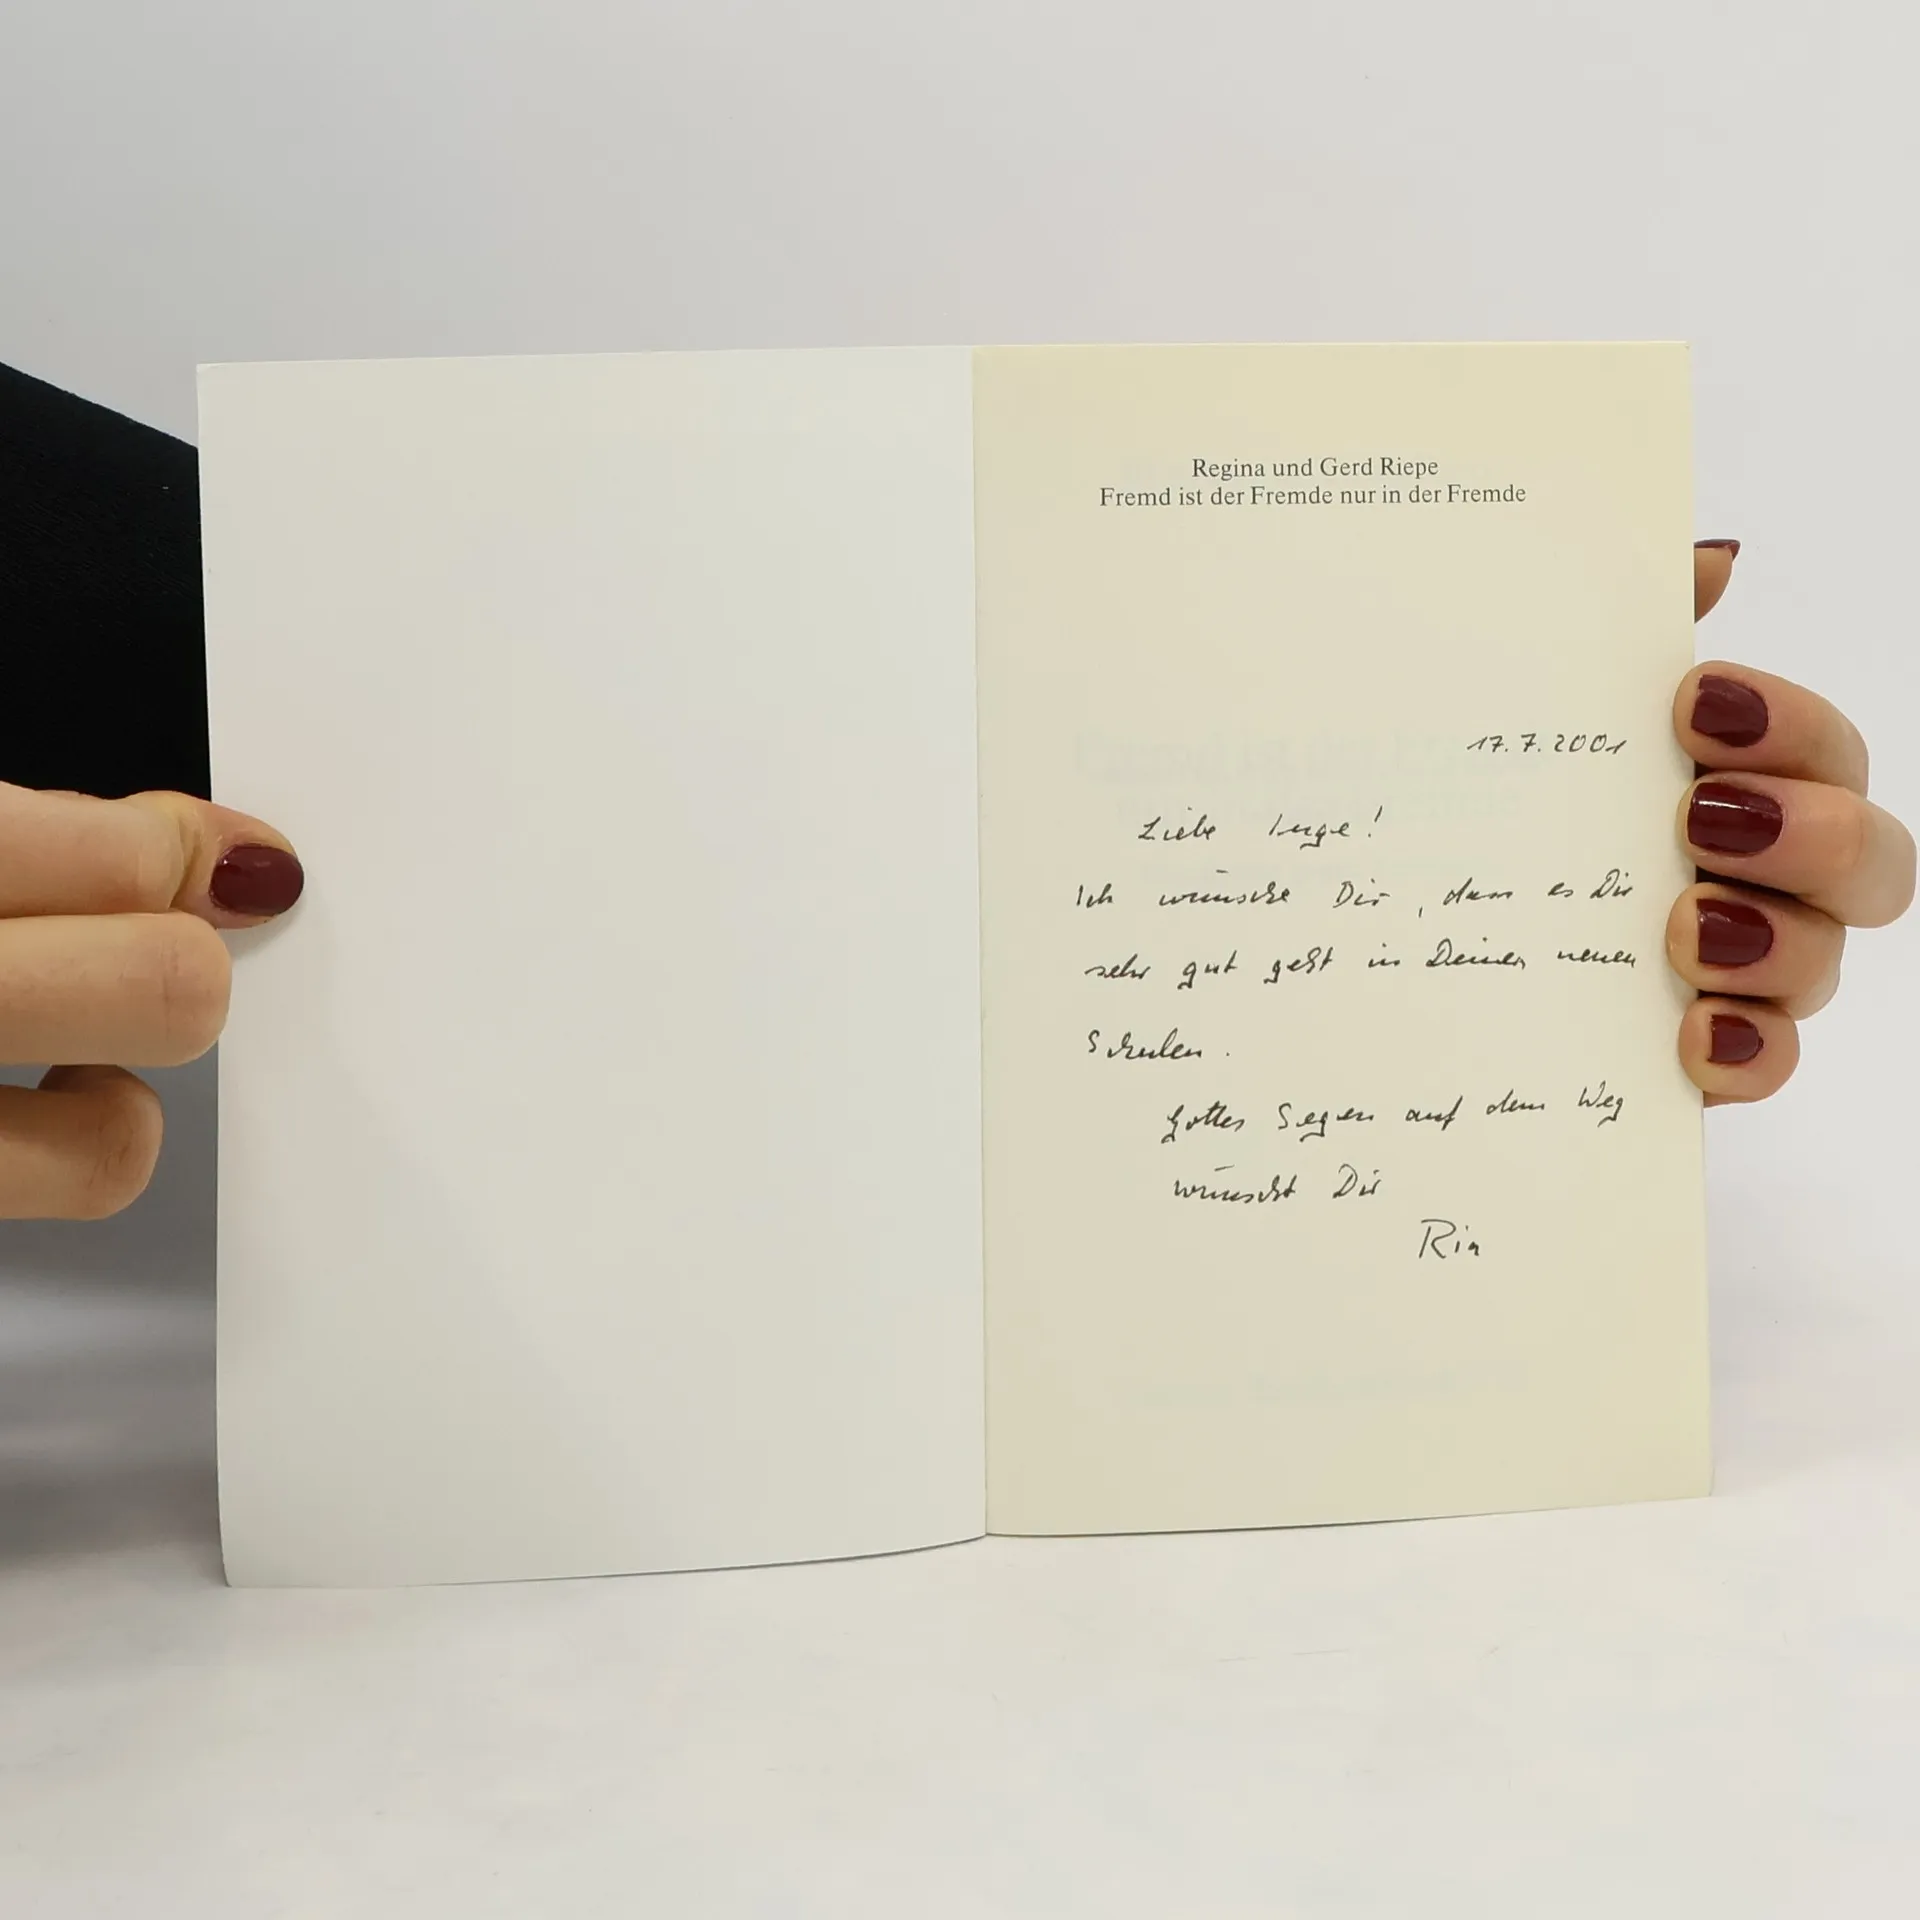 Regina und Gerd Riepe
Fremd ist der Fremde nur in der Fremde
17.7.2001
Liebe Inge!
Ich wünsche Dir, dass es Dir
sehr gut geht in Deinen neuen
Schulen.
Gottes Segen auf dem Weg
wünscht Dir
Ria